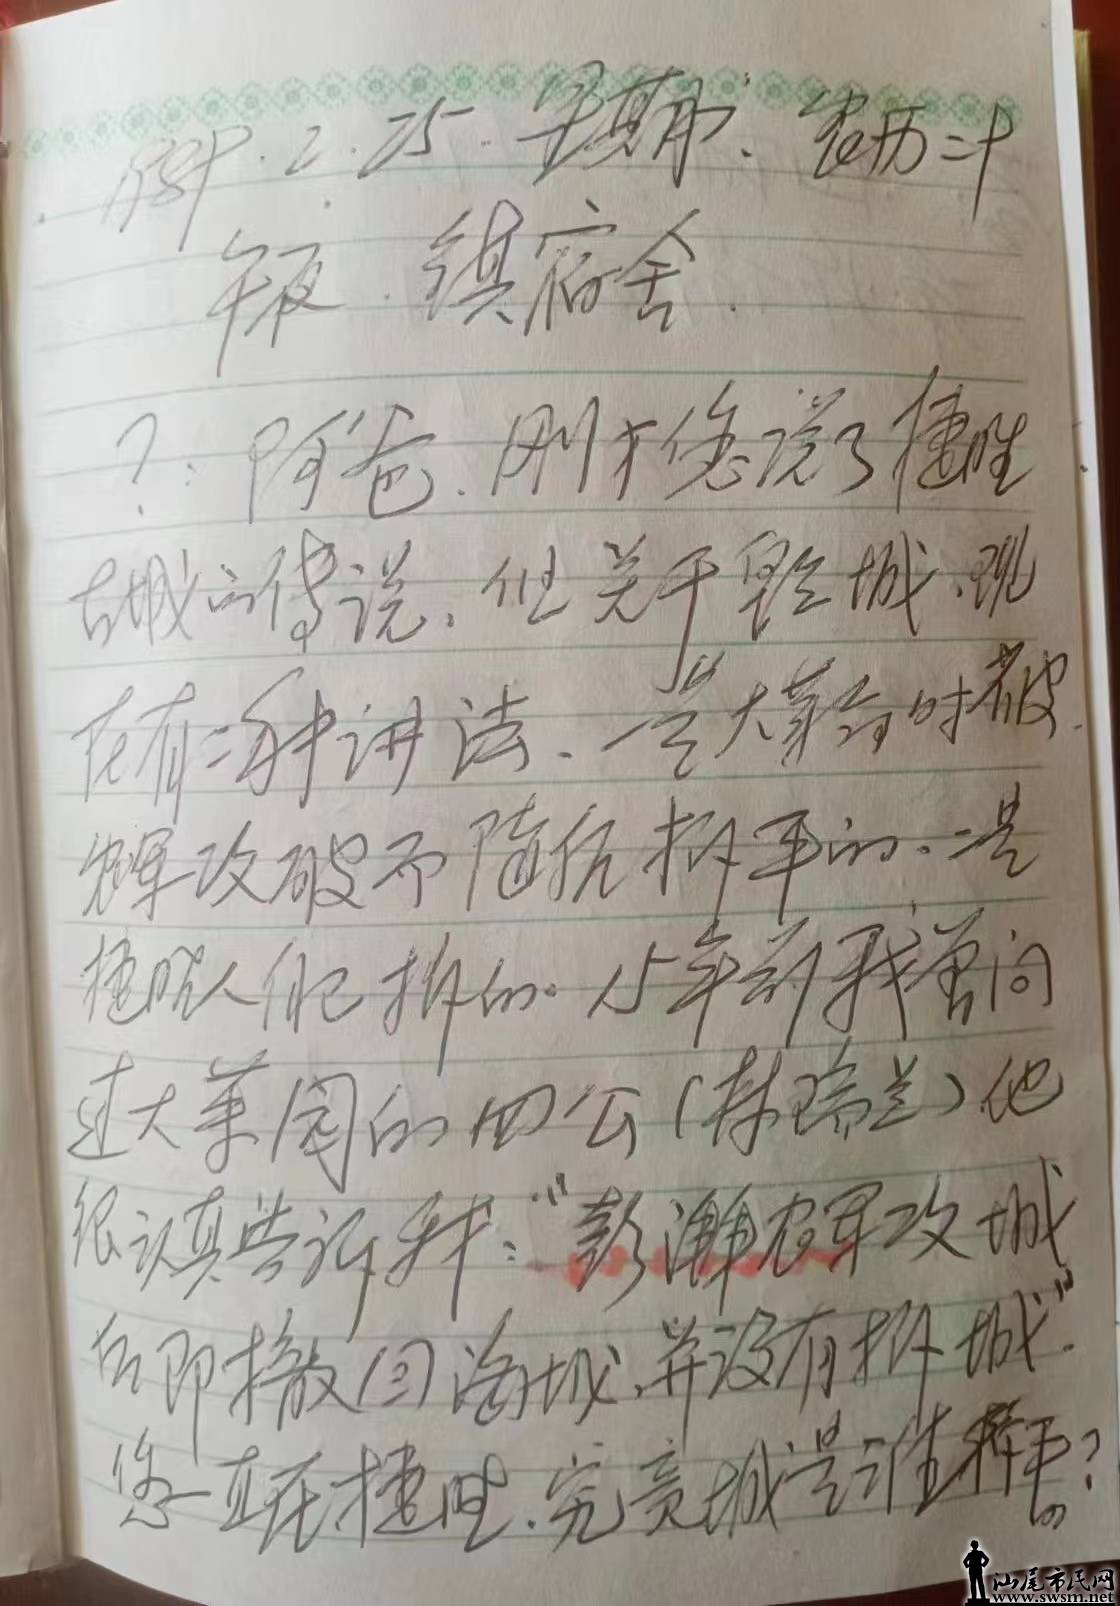 .2.25.星期 . 农历二十
午夜.镇宿舍.
?:阿爸.刚才您说了捷胜
古城的传说.但关于毁城.现
在有二种讲法.一是大革命时被
农军攻破而随后拆平的.二是
捷胜人自己拆的.15年前我曾问
过大菜园的四公(林瑞兰)他
很认真告诉我:“彭湃农军攻城
后即撤回海城,并没有拆城”.
您一直在捷胜.究竟城是谁拆的?
汕尾市民网
www.swsm.net